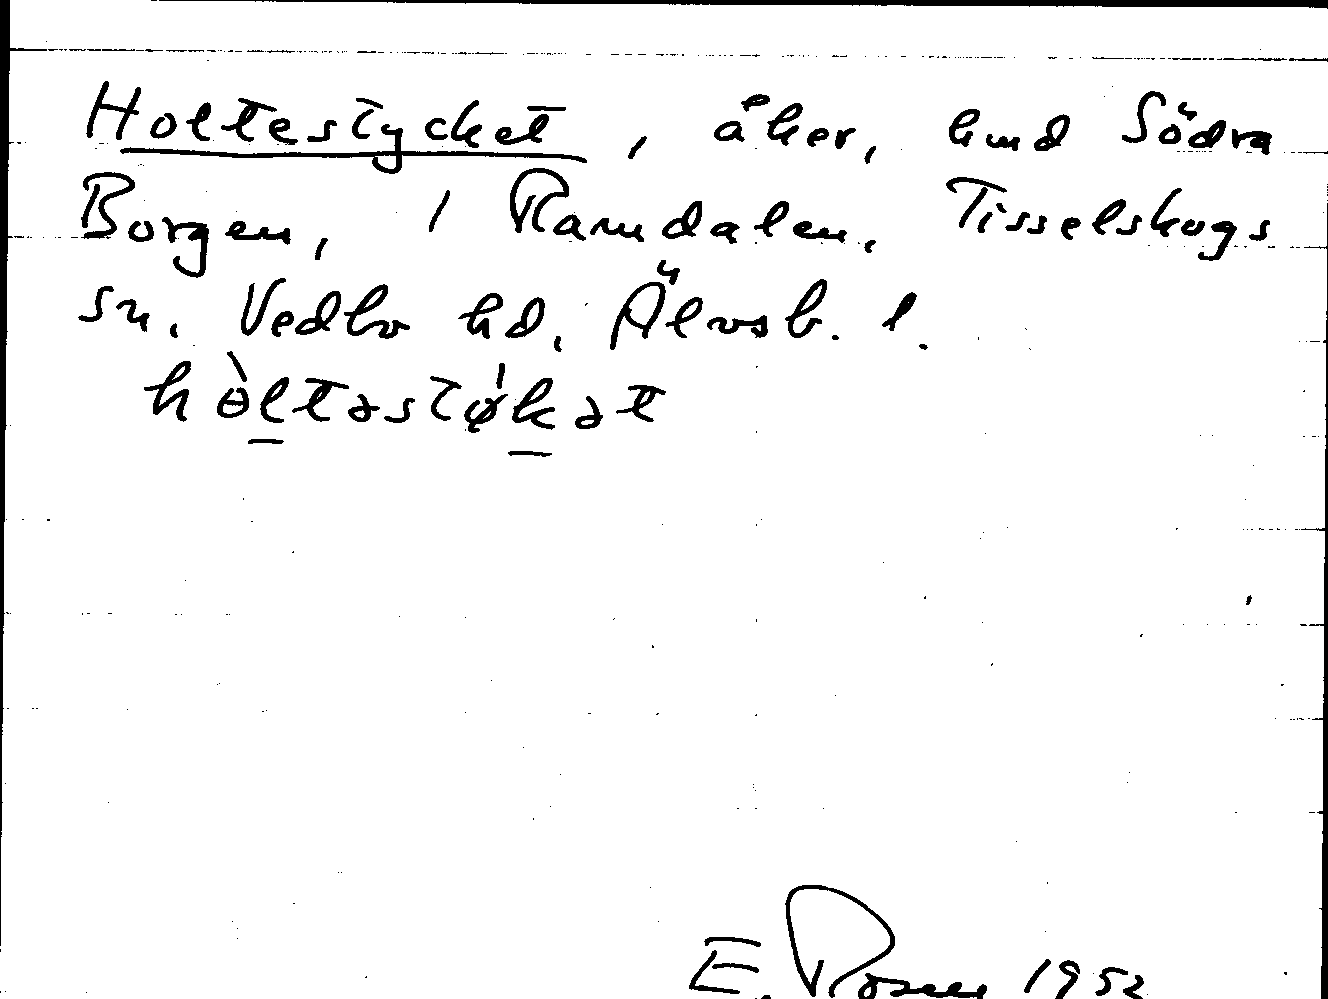 Holtestycket, åker, hmd Södra
Borgen, / Ramdalen, Tisselskogs
sn, Vedbo hd, Älvsb. l.
hòltəstø̍kət
E. Rosen 1952